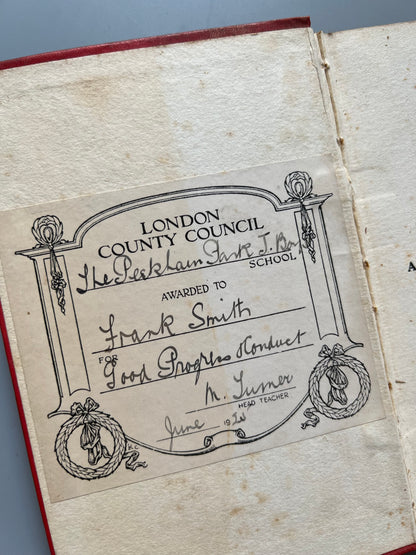 LONDON
COUNTY COUNCIL
The Peckham Park J. Boys
SCHOOL
AWARDED TO
Frank Smith
FOR
Good Progress & Conduct
M. Turner
HEAD TEACHER
June 19
A